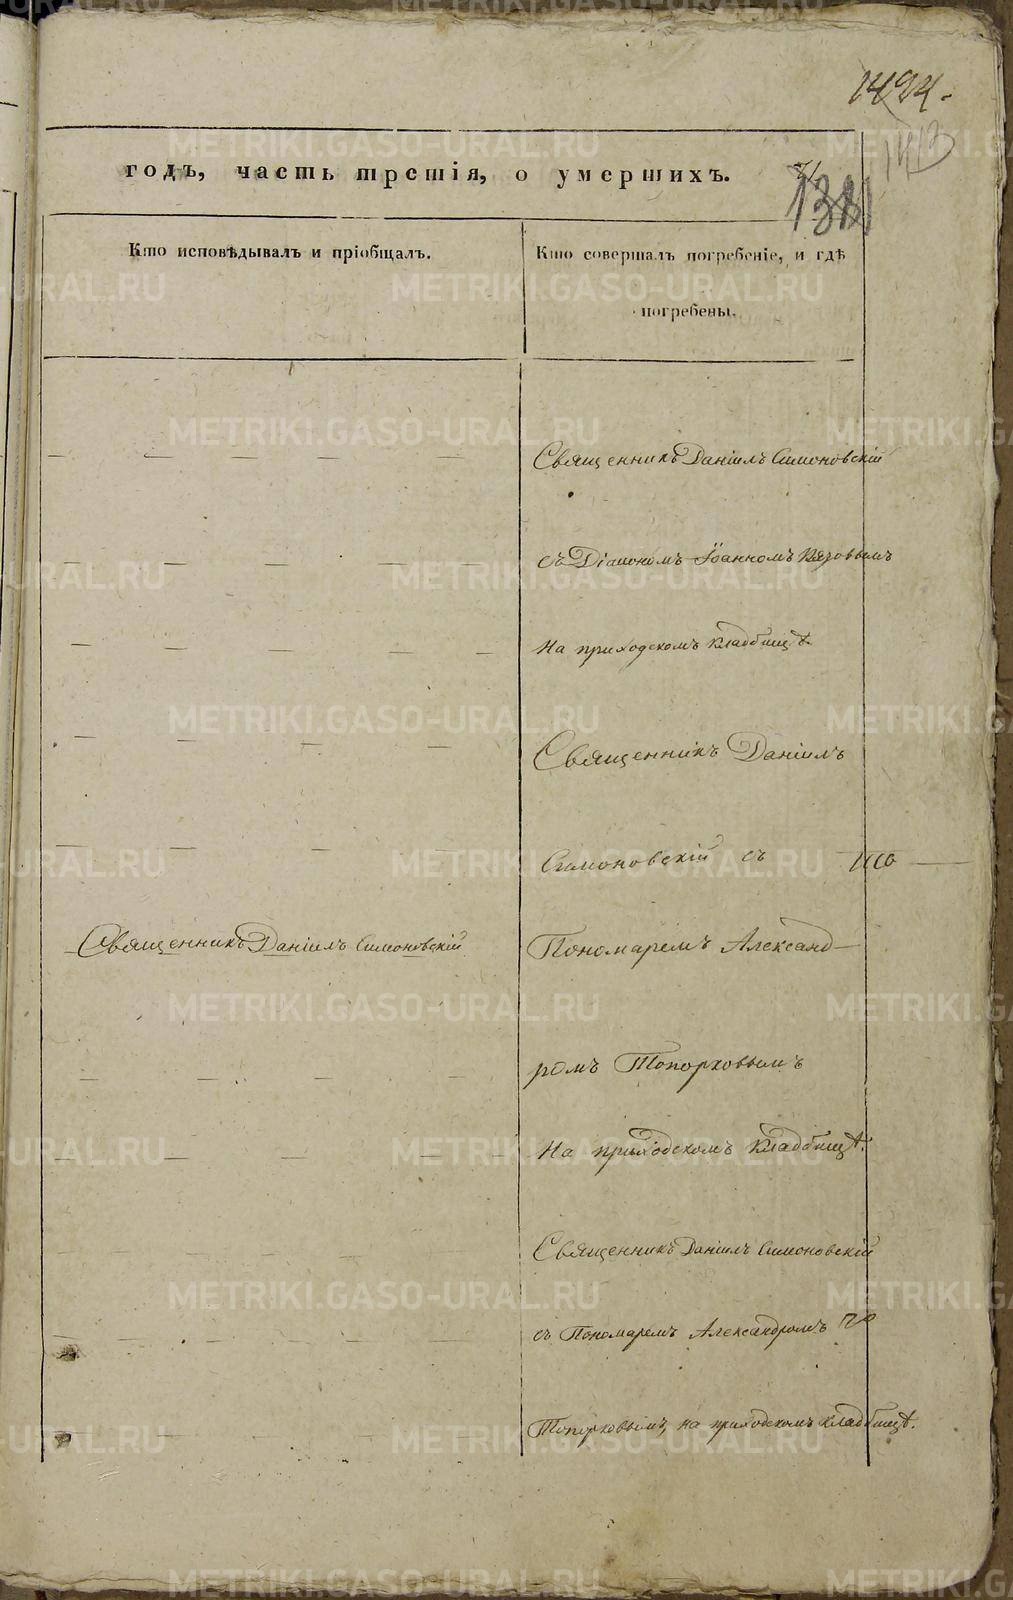 1494.
1413
годъ, часть третія, о умершихъ.
Кто исповѣдывалъ и пріобщалъ.
Кто совершалъ погребеніе, и гдѣ
погребены.
Священникъ Даніилъ Симоновскій
съ Діакономъ Іоанномъ
На приходскомъ кладбищѣ.
Священникъ Даніилъ
Симоновскій съ
Священникъ Даніилъ Симоновскій
Пономаремъ Александ-
ромъ Топорковымъ
На приходскомъ кладбищѣ.
Священникъ Даніилъ Симоновскій
съ Пономаремъ Александромъ
Топорковымъ, на приходскомъ кладбищѣ.
METRIKI.GASO-URAL.RU